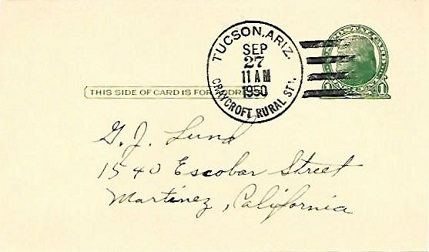 TUCSON, ARIZ.
SEP
27
11 AM
1950
CRAYCROFT RURAL STA.
THIS SIDE OF CARD IS FOR ADDR
1
G. J. Lund
1540 Escobar Street
Martinez, California